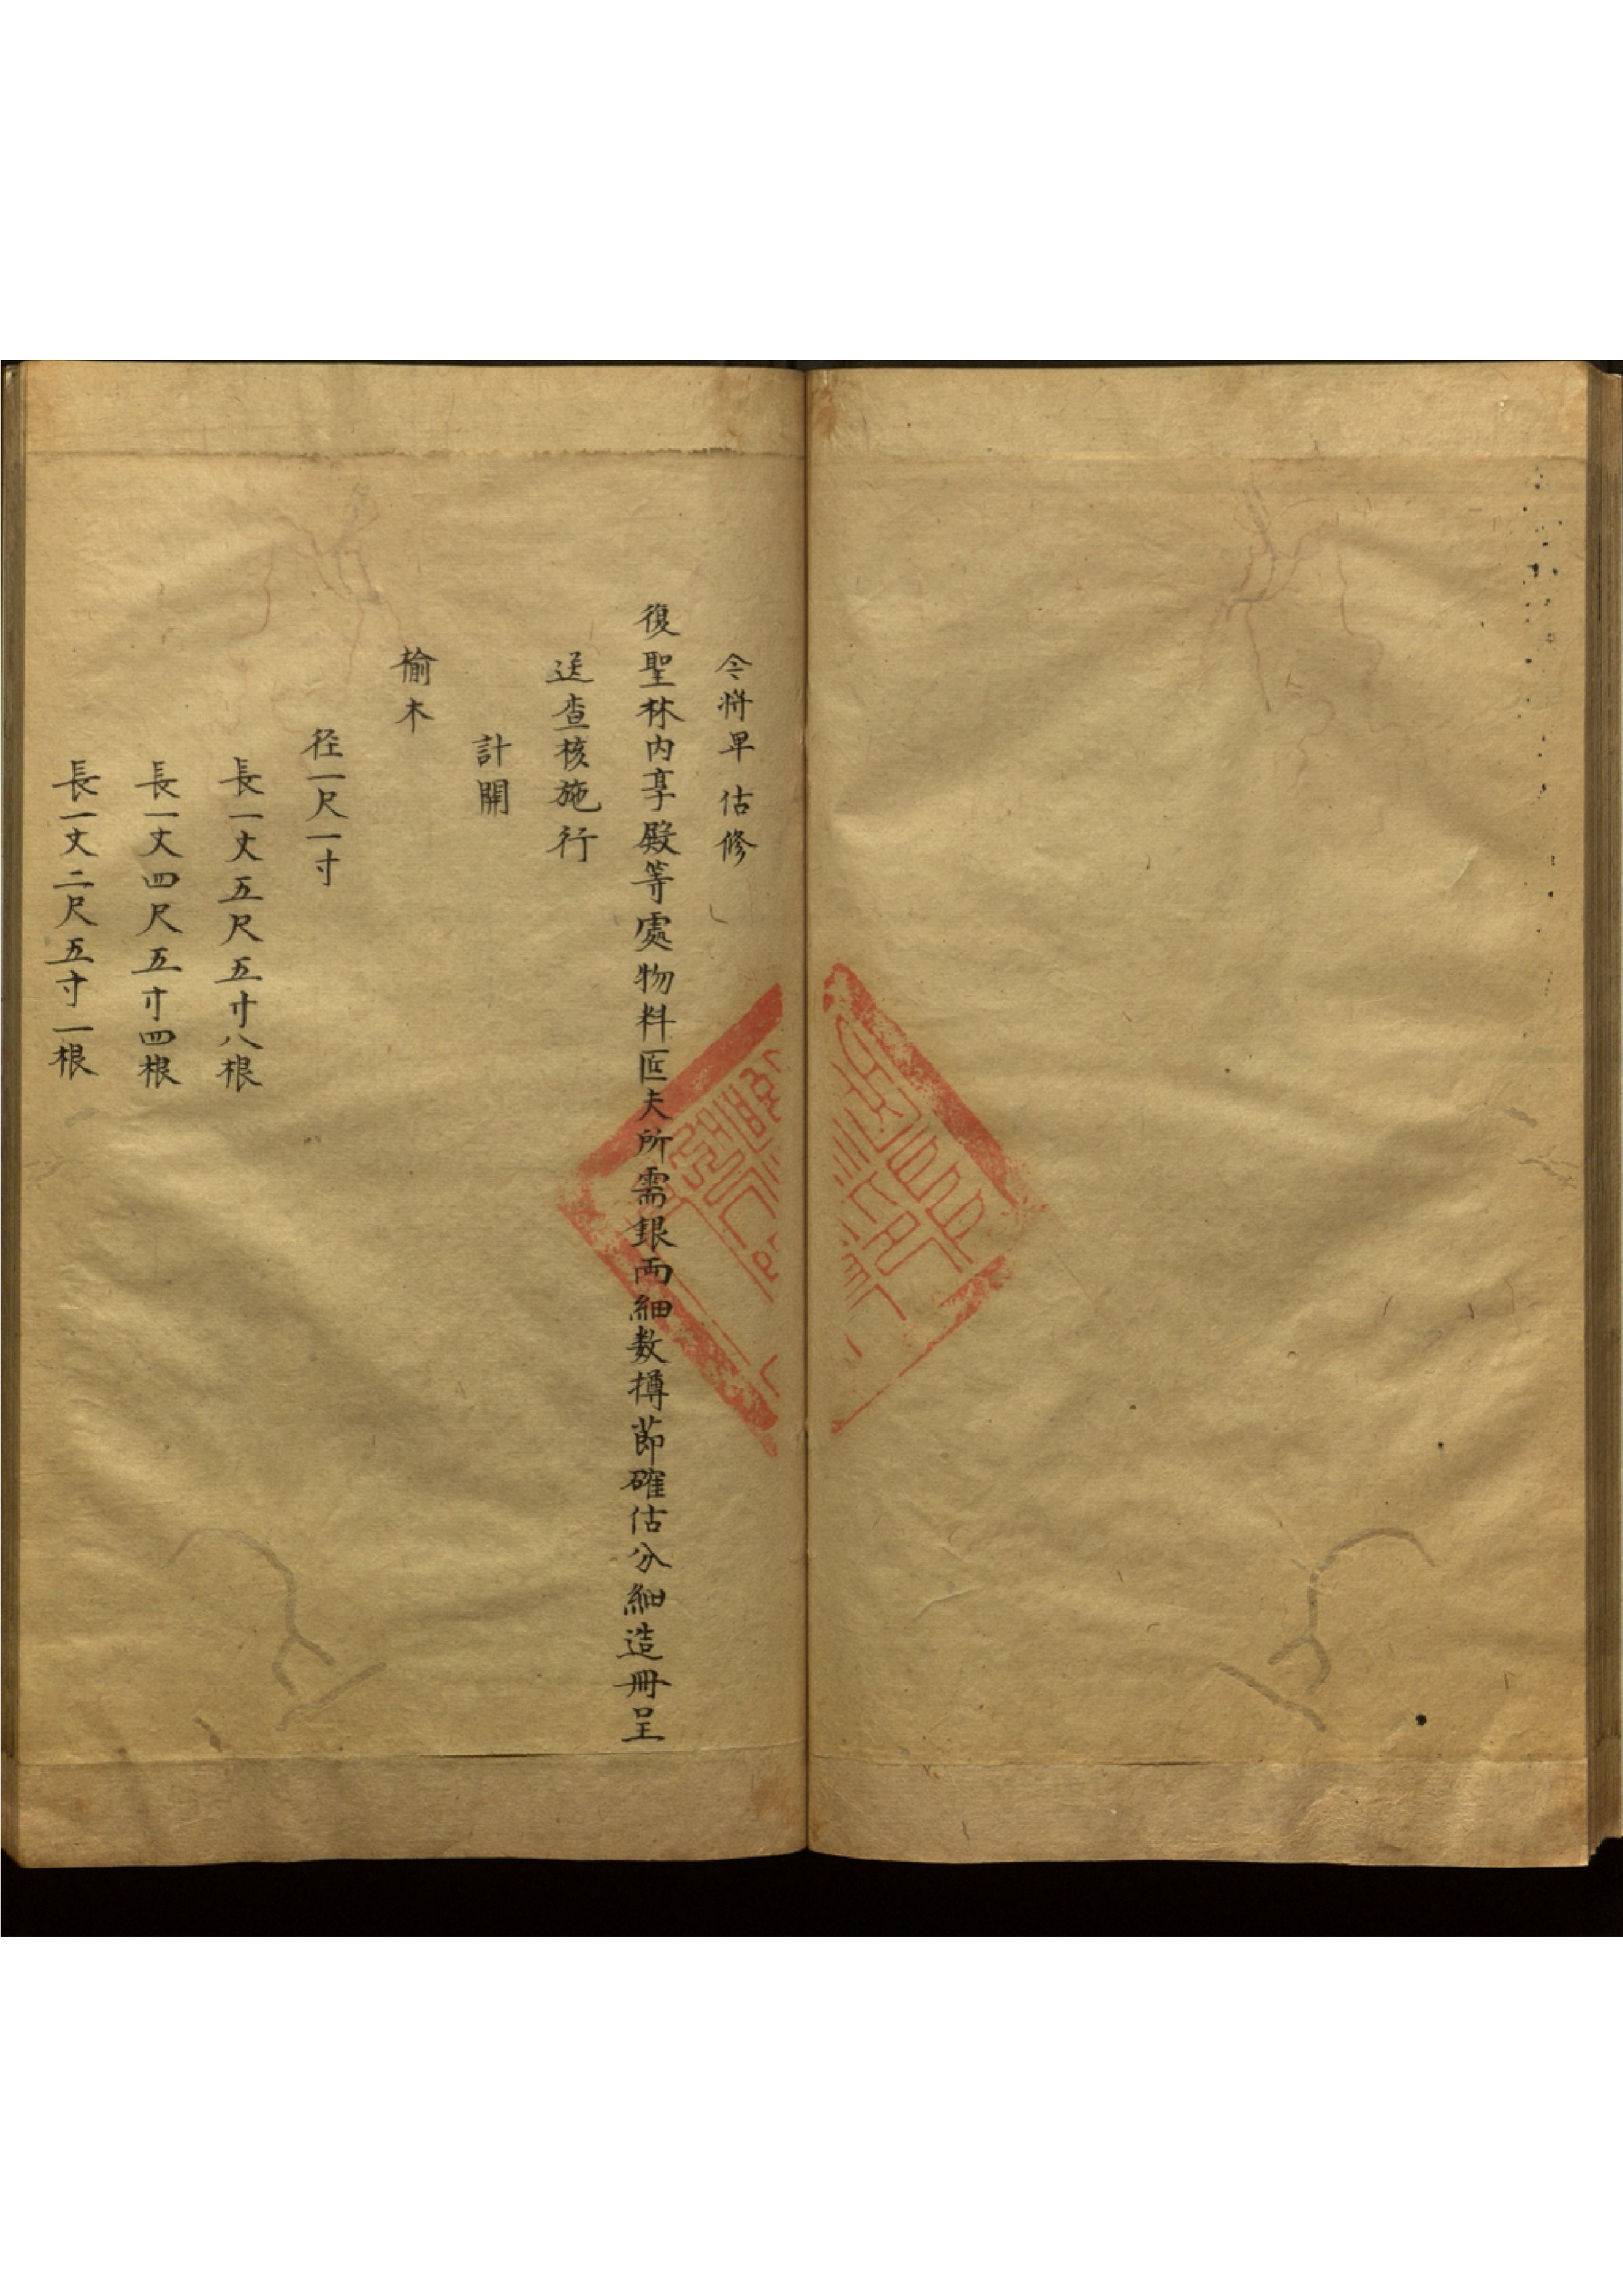 今将早估修
復聖林内享殿等處物料匠夫所需銀両細数撙節確估分細造冊呈
送查核施行
計開
榆木
径一尺一寸
長一丈五尺五寸八根
長一丈四尺五寸四根
長一丈二尺五寸一根